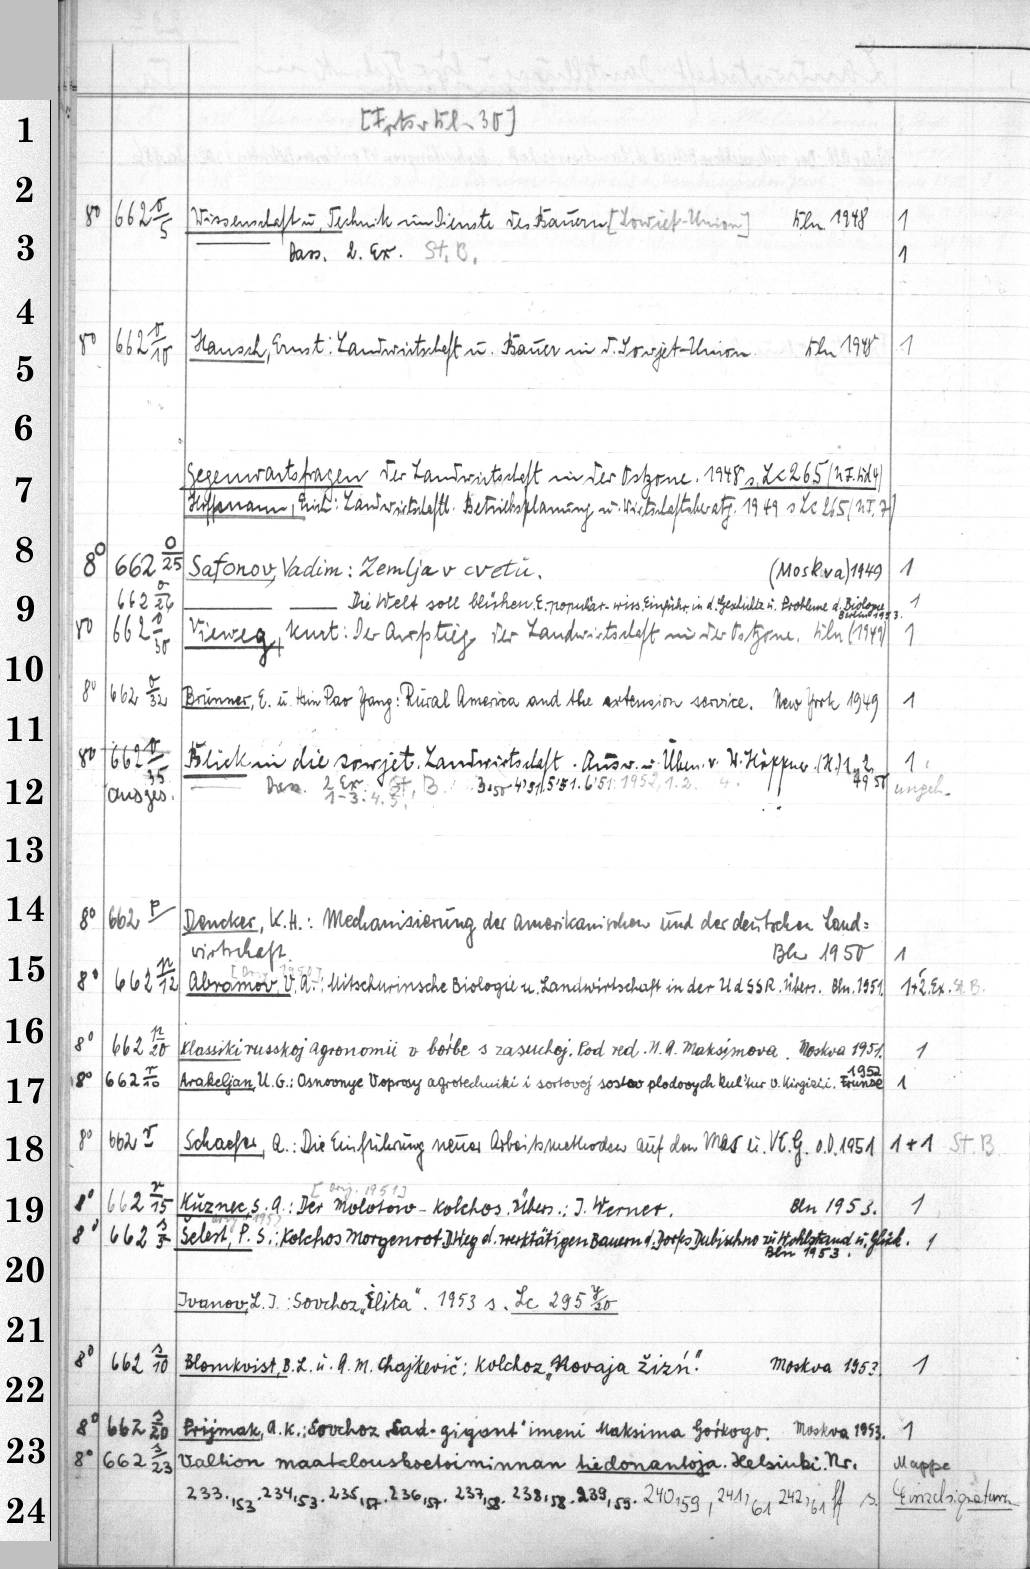 1
2
8° 662 o/5 Wissenschaft u. Technik im Dienste des Bauern [Sowjet-Union] Bln. 1948 1
3
Dass. 2. Ex. St. B. 1
4
8° 662 o/10 Hausch, Ernst: Landwirtschaft u. Bauer in d. Sowjet-Union. Bln 1948 1
5
6
Gegenwartsfragen der Landwirtschaft in der Ostzone. 1948 s. Lc 265 (N.F. Bd 4)
7
Hoffmann, Erich: Landwirtschaftl. Betriebsplanung u. Wirtschaftsberatg. 1949 s Lc 265 (N.F. 7)
8
8° 662 o/25 Safonov, Vadim: Zemlja v cvetu. (Moskva) 1949 1
662 o/26 Die Welt soll blühen. E. populär-wiss. Einführ. in d. Geschichte u. Probleme d. Biologie. Berlin 1953. 1
9
8° 662 o/30 Vieweg, Kurt: Der Aufstieg der Landwirtschaft in der Ostzone. Bln (1949) 1
10
8° 662 o/32 Brunner, E. u. Hsin Pao Yang: Rural America and the extension service. New York 1949 1
11
8° 662 o/35 Blick in die sowjet. Landwirtschaft. Ausw. u. Übers. v. W. Höppner. (H.) 1. 2. 49 50 1
12
ausges. Dass. 2 Ex. St. B. 3.'50 4'51. 5'51. 6'51. 1952, 1. 2. 4. ungeb.
1-3. 4. 5.
13
14
8° 662 p Dencker, K. H.: Mechanisierung der amerikanischen und der deutschen Land=
wirtschaft. Bln 1950 1
15
8° 662 p/12 Abramov, V. A.: Mitschurinsche Biologie u. Landwirtschaft in der UdSSR. Übers. Bln. 1951. 1+2. Ex. St B.
16
8° 662 p/20 Klassiki russkoj agronomii v boŕbe s zasuchoj. Pod red. N. A. Maksimova. Moskva 1951. 1
17
8° 662 r/10 Arakeljan, U. G.: Osnovnye Voprosy agrotechniki i sortovoj sostav plodovych kul'tur v. Kirgizii. Frunze 1952 1
18
8° 662 r Schaefer, A.: Die Einführung neuer Arbeitsmethoden auf den Mas u. VEG. o.O. 1951 1+1 St. B
[Orig. 1951]
19
8° 662 r/15 Kuznec, S. A.: Der Molotow-Kolchos. Übers.: J. Werner. Bln 1953. 1
8° 662 s/5 Šelest, P. S.: Kolchos Morgenrot. D. Weg d. werktätigen Bauern d. Dorfs Dubischno zu Wohlstand u. Glück. Bln 1953. 1
20
Ivanov, L. I.: Sovchoz „Ėlita“. 1953 s. Lc 295 y/20
21
8° 662 s/10 Blomkvist, B. L. u. A. M. Chajkevič: Kolchoz „Novaja žizń“. Moskva 1953. 1
22
8° 662 s/20 Prijmak, A. K.: Sovchoz „Sad-gigant“ imeni Maksima Goŕkogo. Moskva 1953. 1
23
8° 662 s/23 Valtion maatalouskoetoiminnan tiedonantoja. Helsinki. Nr. Mappe
24
233.,53. 234,53. 235,57. 236,57. 237,58. 238,58. 239,59. 240,59, 241,61 242,61 ff s. Einzelsignaturen